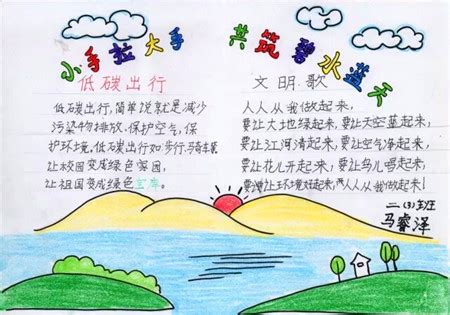 小手拉大手 共筑碧水蓝天
低碳出行
低碳出行,简单说就是减少
污染物排放,保护空气,保
护环境。低碳出行如步行,骑车
让校园变成绿色
让祖国变成绿色
文明歌
人人从我做起来,
要让大地绿起来,要让天空蓝起来,
要让江河清起来,要让空气净起来,
要让花儿开起来,要让鸟儿唱起来,
要让环境好起来,人人从我做起来!
二(3)班
马睿泽